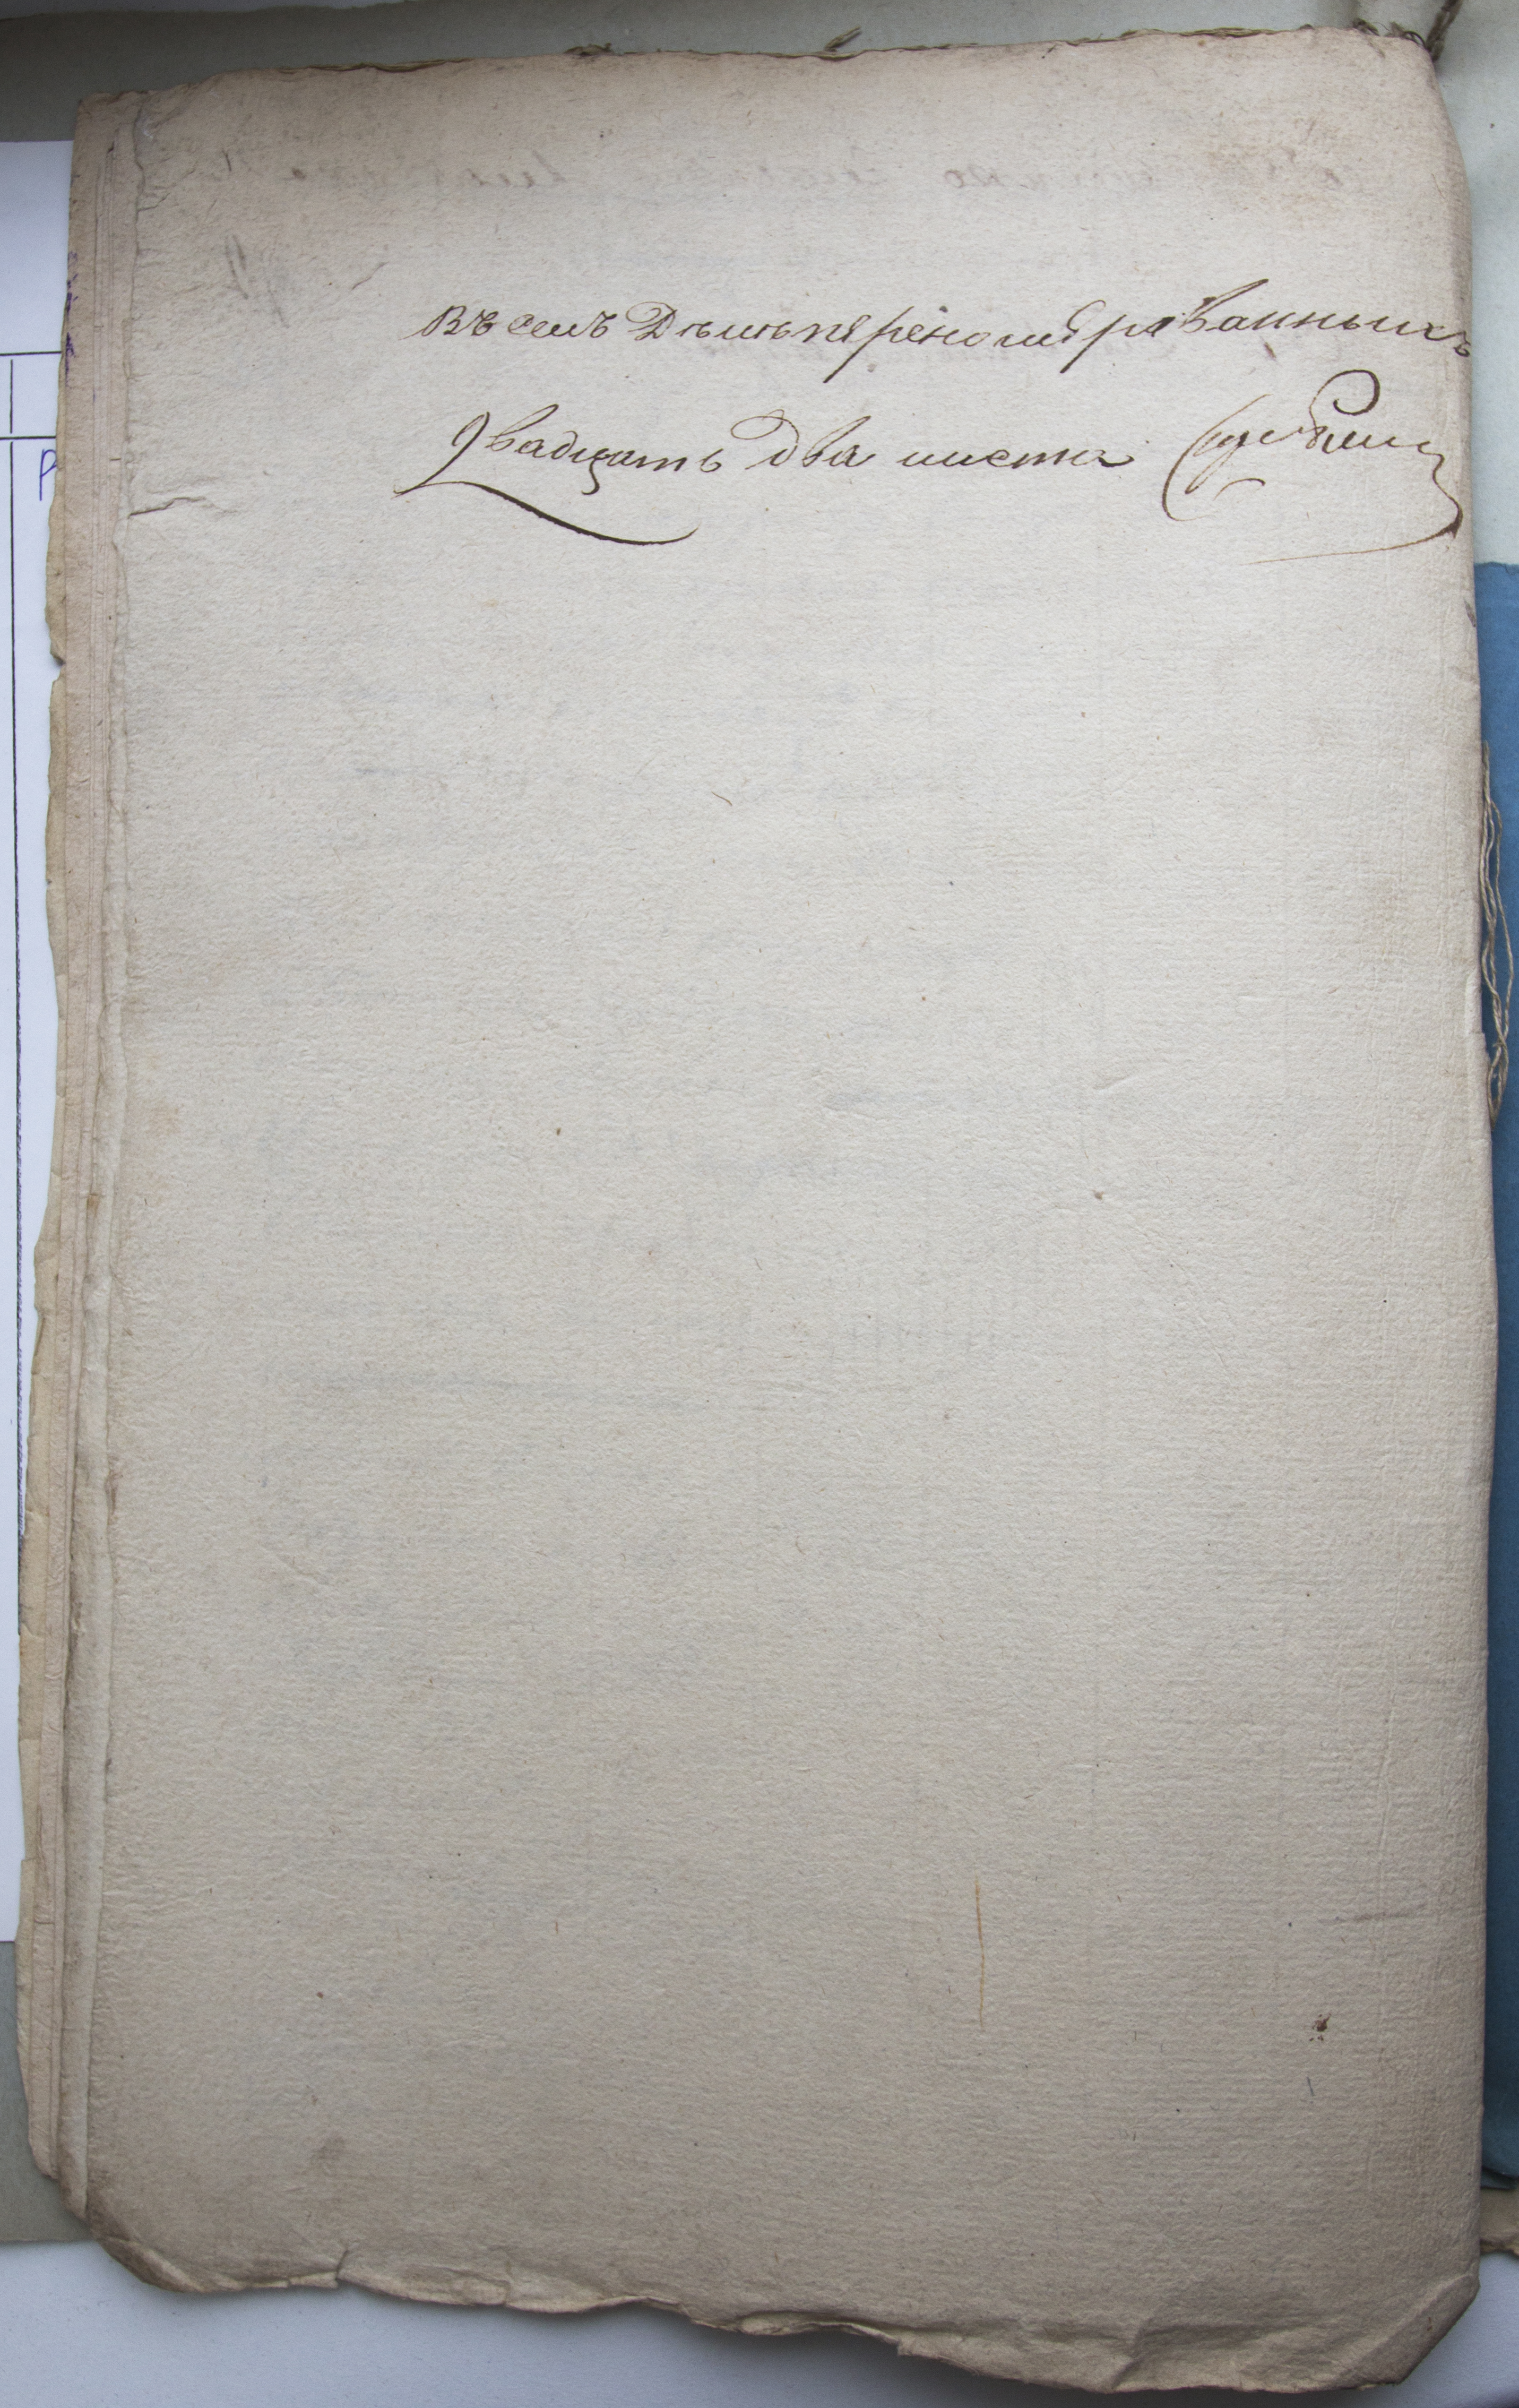 Въ семъ Дѣлѣ перѣномѣрованныхъ
двадцать два листа